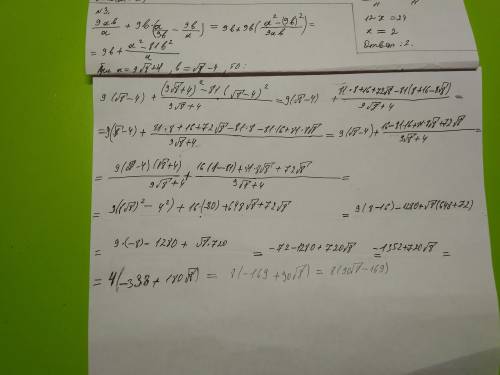 N3.
9ab/a + 9b·(a/9b - 9b/a) = 9b + 9b(a² - (9b)²/9ab) =
= 9b + a² - 81b²/a
a = 9√8 + 4, b = √8 - 4,
12x = 24
x = 2
Ответ: 2.
9(√8 - 4) + (9√8 + 4)² - 81(√8 - 4)²/9√8 + 4 = 9(√8 - 4) +
= 9(√8 - 4) + 81·8 + 16 + 72√8 - 81·8 - 81·16 + 81·8√8/9√8 + 4 = 9(√8 - 4) + 16 - 81·16 + 81·8√8 + 72√8/9√8 + 4
= 9(√8 - 4)(√8 + 4)/9√8 + 4 + 16(1 - 81) + 81·8√8 + 72√8/9√8 + 4 =
= 9((√8)² - 4²) + 16(-80) + 648√8 + 72√8 = 9(8 - 16) - 1280 + √8(648 + 72)
= 9·(-8) - 1280 + √8·720 = -72 - 1280 + 720√8 = -1352 + 720√8 =
= 4(-338 + 180√8) = 8(-169 + 90√8) = 8(90√8 - 169)